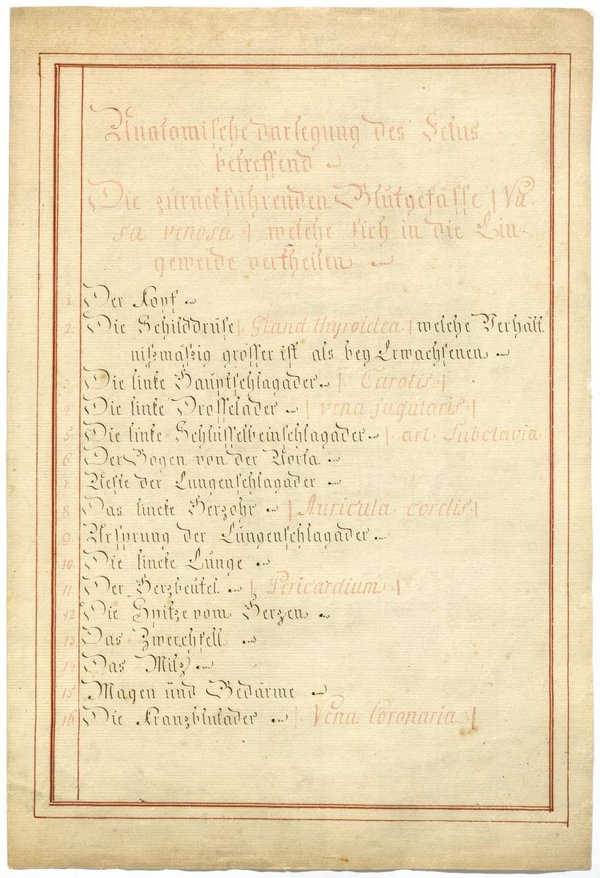 Anatomische darlegung des Fetus
betreffend
Die zurückführenden Blutgefässe | Va-
sa venosa | welche sich in die Ein-
geweide vertheilen
1. Der Kopf
2. Die Schilddrüse | Gland. thyroidea | welche Verhält
nißmäßig grösser ist als bey Erwachsenen
3. Die linke Hauptschlagader | Carotis |
4. Die linke Drosselader | vena jugularis |
5. Die linke Schlüsselbeinschlagader | art. Subclavia
6. Der Bogen von der Aorta
7. Aeste der Lungenschlagader
8. Das lincke Herzohr | Auricula cordis |
9. Ursprung der Lungenschlagader
10. Die lincke Lunge
11. Der Herzbeutel | Pericardium |
12. Die Spitze vom Herzen
13. Das Zwerchfell
14. Das Milz
15. Magen und Gedärme
16. Die Kranzblutader | Vena Coronaria |